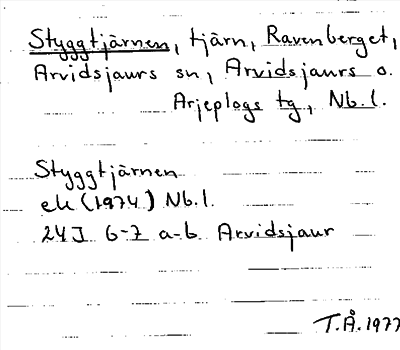 Styggtjärnen, tjärn, Ravenberget,
Arvidsjaurs sn, Arvidsjaurs o.
Arjeplogs tg, Nb.l.
Styggtjärnen
ek (1974) Nb.l.
24J 6-7 a-b Arvidsjaur
T.Å.1977